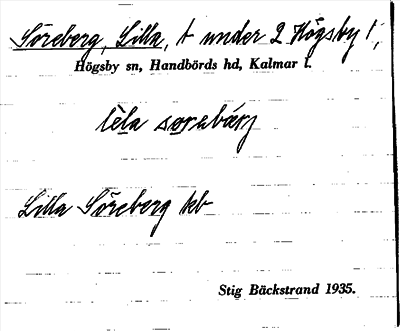 Söreberg, Lilla, t under 2 Högsby 1,
Högsby sn, Handbörds hd, Kalmar l.
lela sorabärj
Lilla Söreberg kb
Stig Bäckstrand 1935.